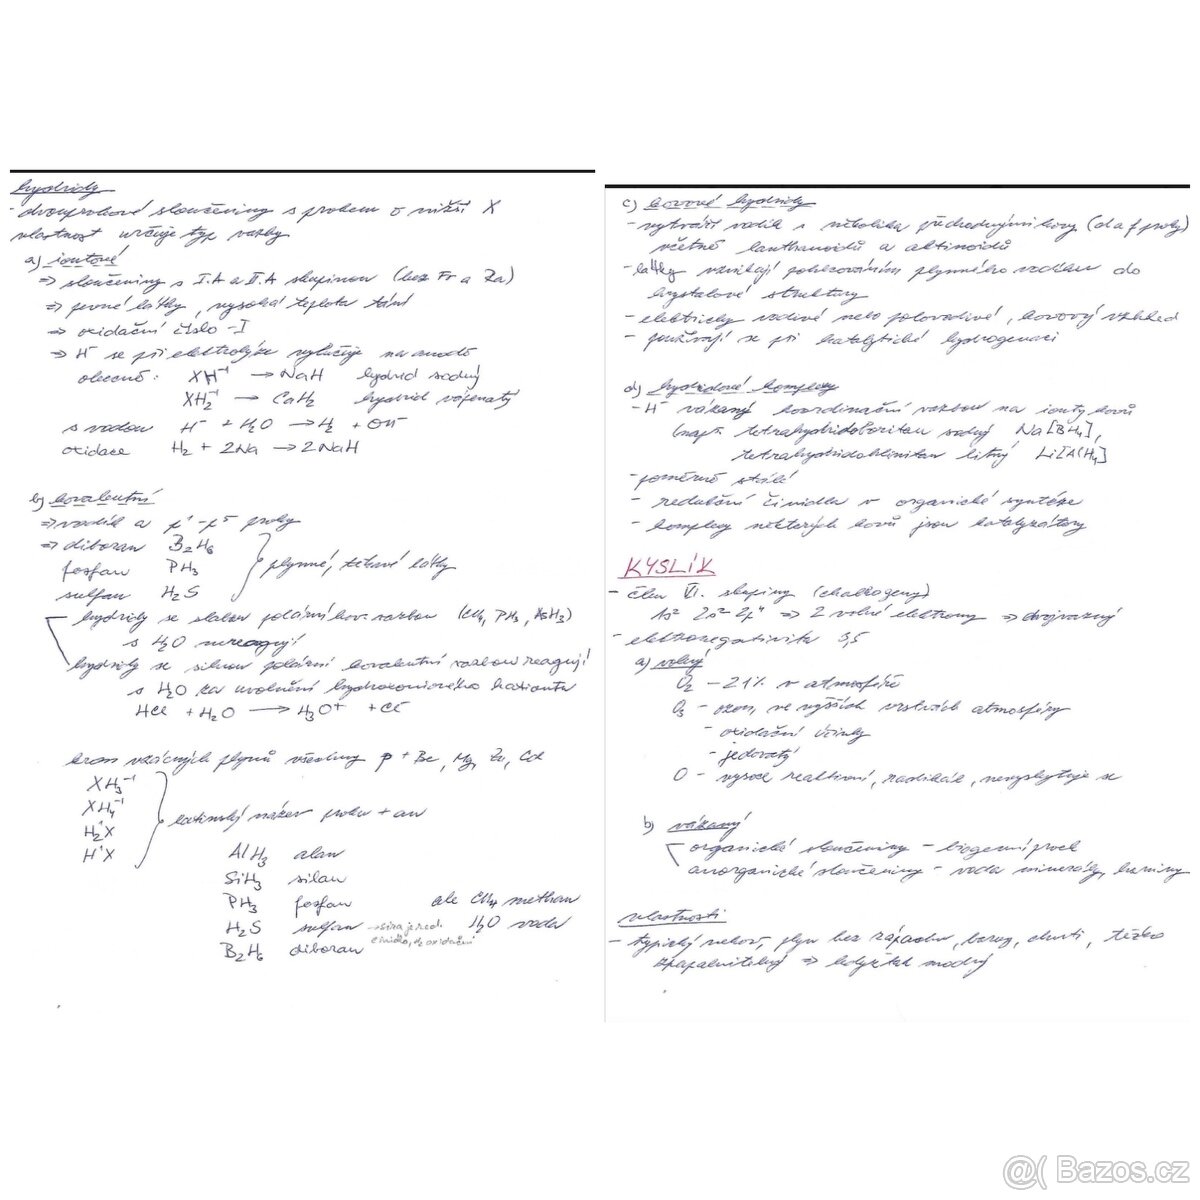 hydridy
- dvouprvkové sloučeniny s prvkem o nižší X
vlastnost určuje typ vazby
a) iontové
⇒ sloučeniny s I.A a II.A skupinou (bez Fr a Ra)
⇒ pevné látky, vysoká teplota tání
⇒ oxidační číslo -I
⇒ H⁻ se při elektrolýze vylučuje na anodě
obecně: XH⁻¹ → NaH hydrid sodný
XH₂⁻¹ → CaH₂ hydrid vápenatý
s vodou H⁻ + H₂O → H₂ + OH⁻
oxidace H₂ + 2Na → 2NaH
b) kovalentní
⇒ vodík a p¹-p⁵ prvky
⇒ diboran B₂H₆
fosfan PH₃
sulfan H₂S
plynné, těkavé látky
hydridy se slabou polární kov. vazbou (CH₄, PH₃, AsH₃)
s H₂O nereagují
hydridy se silnou polární kovalentní vazbou reagují
s H₂O za uvolnění hydroxoniového kationtu
HCl + H₂O → H₃O⁺ + Cl⁻
krom vzácných plynů všechny p + Be, Mg, Zn, Cd
XH₃⁻¹
XH₄⁻¹
H₂¹X
H¹X
latinský název prvku + an
AlH₃ alan
SiH₃ silan
PH₃ fosfan ale CH₄ methan
H₂S sulfan - síra je red. H₂O voda
činidlo, ox. oxidační
B₂H₆ diboran
c) kovové hydridy
- vytváří vodík s několika přechodnými kovy (d a f prvky)
včetně lanthanoidů a aktinoidů
- látky vznikají pohlcováním plynného vodíku do
krystalové struktury
- elektricky vodivé nebo polovodivé, kovový vzhled
- používají se při katalytické hydrogenaci
d) hydridové komplexy
- H⁻ vázaný koordinační vazbou na ionty kovů
(např. tetrahydridoboritan sodný Na[BH₄],
tetrahydridohlinitan litný Li[AlH₄]
- poměrně stálé
- redukční činidla v organické syntéze
- komplexy některých kovů jsou katalyzátory
KYSLÍK
- člen VI. skupiny (chalkogeny)
1s² 2s² 2p⁴ ⇒ 2 volné elektrony ⇒ dvojvazný
- elektronegativita 3,5
a) volný
O₂ - 21% v atmosféře
O₃ - ozon, ve vyšších vrstvách atmosféry
- oxidační účinky
- jedovatý
O - vysoce reaktivní, radikál, nevyskytuje se
b) vázaný
organické sloučeniny - biogenní prvek
anorganické sloučeniny - voda minerály, horniny
vlastnosti
- typický nekov, plyn bez zápachu, barvy, chuti, těžko
zkapalnitelný ⇒ kapalný modrý
@( Bazos.cz